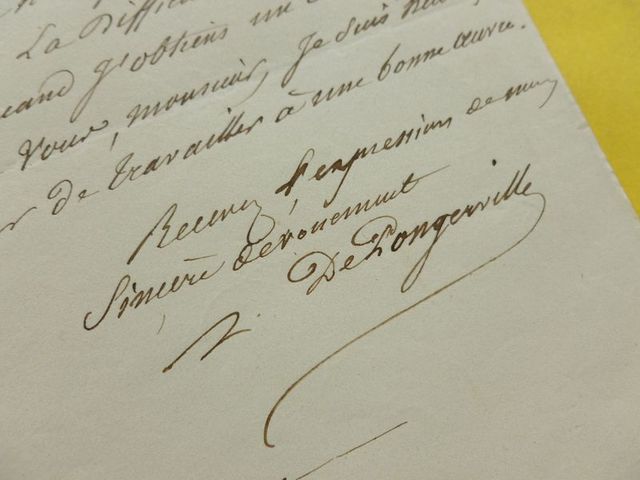 La Diffic
quand j'obtiens un
vous, monsieur, je suis heu
r de travailler à une bonne œuvre.
Recevez l'expression de mon
Sincère dévouement
De Pongerville